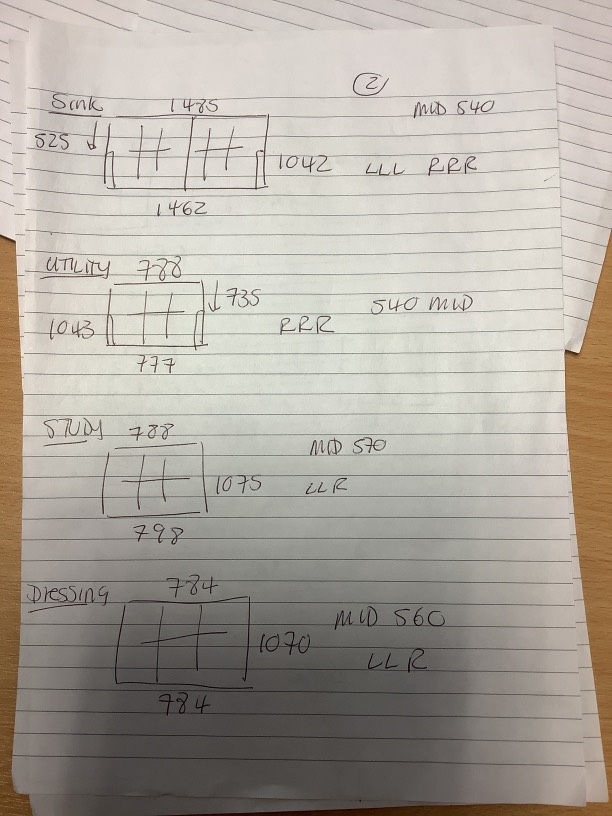 2
Sink 1485 MID 540
525
1042 LLL RRR
1462
UTILITY 788
735 540 MID
1043 RRR
777
STUDY 788
MID 570
1075 LLR
798
Dressing 784
MID 560
1070
LLR
784